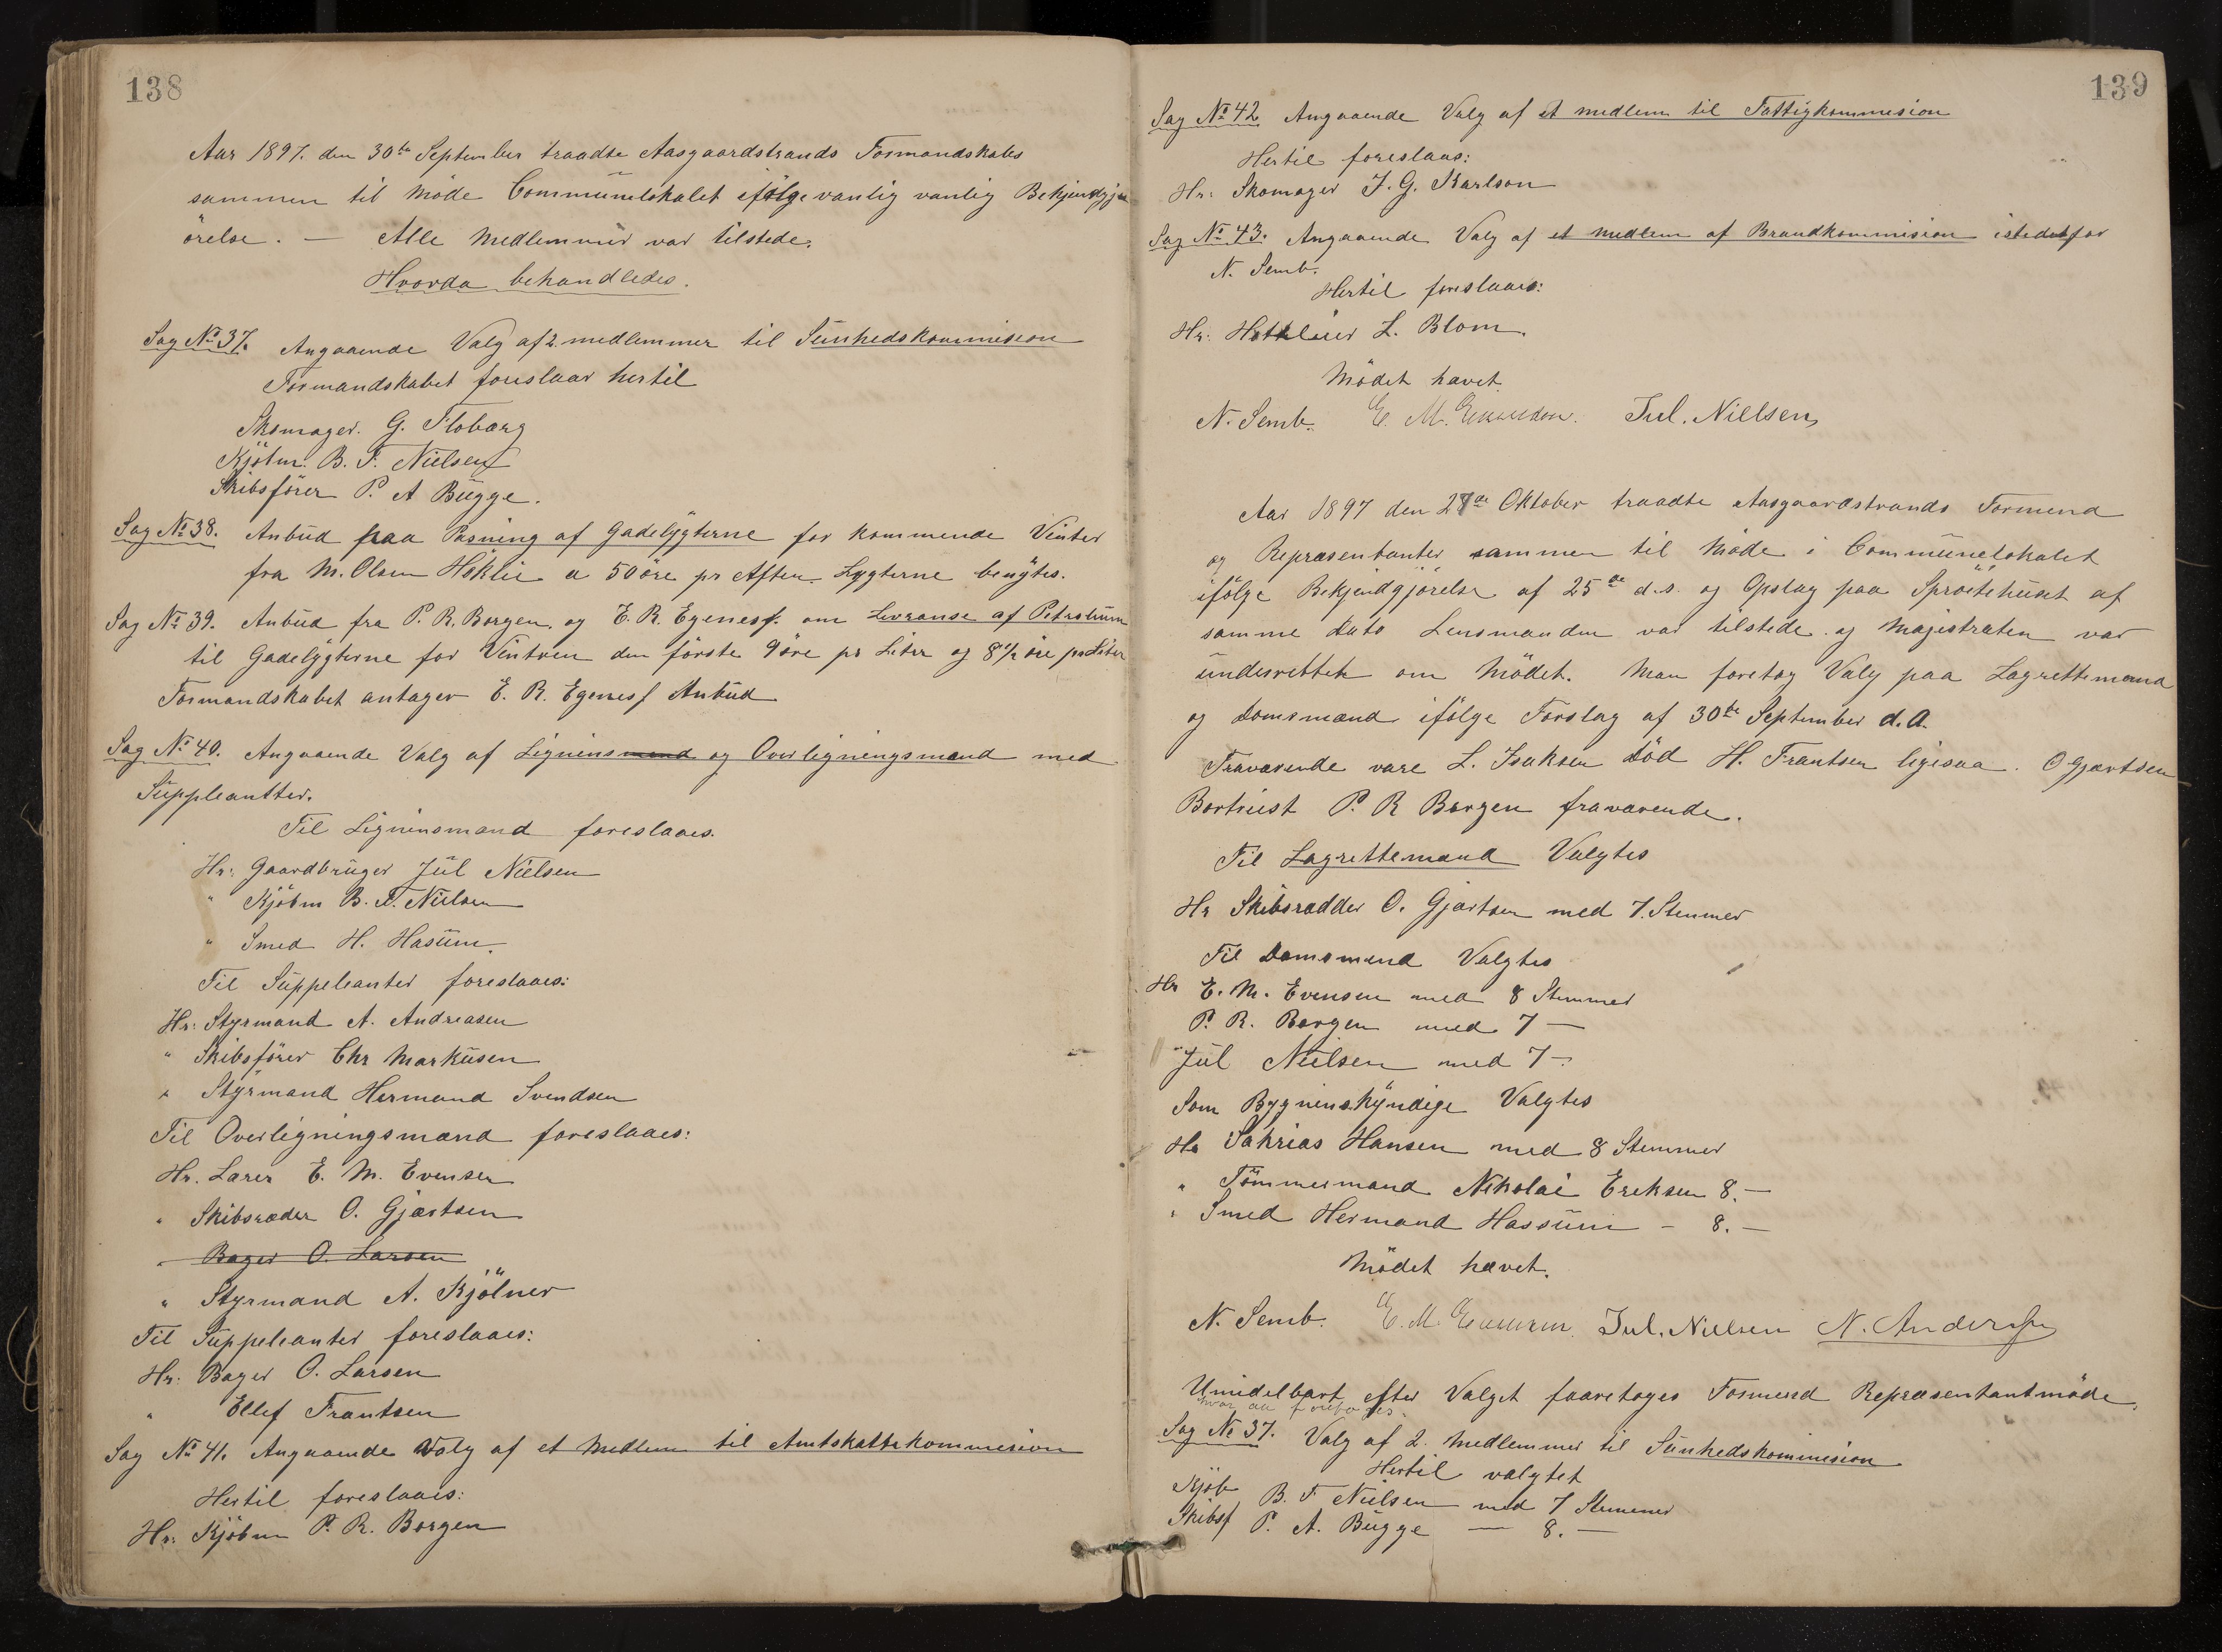 138
Aar 1897. den 30te September traadte Aasgaardstrands Formandskabs
sammen til Möde Communelokalet ifölge vanlig vanlig Bekjendgj
örelse. — Alle Medlemmer var tilstede.
Hvorda behandledes.
Sag No 37. Angaaende Valg af 2 medlemmer til Sunhedskommision
Formandskabet foreslaar hertil
Skomager. G. Floberg
Kjöbm. B. F. Nielsen
Skibsförer P. A Bugge.
Sag No 38. Anbud paa Pasning af Gadelygterne for kommende Vinter
fra M. Olsen Höklie a 50 öre pr Aften Lygterne benÿtes.
Sag No 39. Anbud fra P. R. Borgen. og E. R. Egenes. om Levranse af Petroleum
til Gadelygterne for Vintren den förste 9 öre pr Liter og 8 1/2 öre pr Liter
Formandskabet antager E. R. Egenes Anbud
Sag No 40. Angaaende Valg af Ligninsmænd og Overligningsmænd med
Suppleantter.
Til Ligninsmænd foreslaaes.
Hr: Gaardbruger Jul Nielsen
" Kjöbm B. F. Nielsen
" Smed H. Hasum.
Til Suppeleanter foreslaaes:
Hr: Styrmand A. Andreasen
" Skibsförer Chr Markusen
" Styrmand Hermand Svendsen
Til Overligningsmænd foreslaaes:
Hr. Lærer E. M. Evensen
" Skibsræder O. Gjærtsen
" Bager O. Larsen
" Styrmand A. Kjölner
Til Suppeleanter foreslaaes:
Hr: Bager O. Larsen
" Ellef Frantsen
Sag No 41. Angaaende Valg af et Medlem til Amtskattekommision
Hertil foreslaaes:
Hr: Kjöbm P. R. Borgen
139
Sag No 42 Angaaende Valg af et medlem til Fattigkommesion
Hertil foreslaas:
Hr: Skomager J. G. Karlson
Sag No 43. Angaaende Valg af et medlem af Brandkommision istedetfor
N. Semb.
Hertil foreslaaes:
Hr: Hotelleier L. Blom.
Mödet hævet.
N. Semb. E. M. Evensen. Jul. Nielsen
Aar 1897 den 27de Oktober traadte Aasgaardstrands Formend
og Repræsentanter sammen til Möde i Communelokalet
ifölge Bekjendgjörelse af 25de d.s. og Opslag paa Sproitehuset af
samme Dato Lensmanden var tilstede og Majestraten var
underrettet om Mödet. Man foretog Valg paa Lagrettemænd
og Domsmænd ifölge Forslag af 30te September d.A.
Fraværende vare L. Isaksen Död H. Frantsen ligesaa. O Gjærtsen
Bortreist P. R Borgen fraværende.
Til Lagrettemænd Valgtes
Hr Skibsrædder O. Gjærtsen med 7. Stemmer
Til Domsmænd Valgtes
Hr E. M. Evensen med 8 Stemmer
P. R. Borgen med 7 —
" Jul Nielsen med 7 —
Som Bygninskyndige Valgtes
Hr Sakrias Hansen med 8 Stemmer
" Tömmermand Nikolai Ereksen 8. —
" Smed Hermand Hassum — 8. —
Mödet hævet.
N. Semb. E. M. Evensen. Jul. Nielsen N. Andersen
Umidelbart efter Valget faaretoges Formend Repræsentantmöde.
hvor da foretoges
Sag No 37. Valg af 2. Medlemmer til Sunhedskommision
Hertil valgtet
Kjöb B. F. Nielsen med 7 Stemmer
Skibsf P. A. Bugge — 8. —